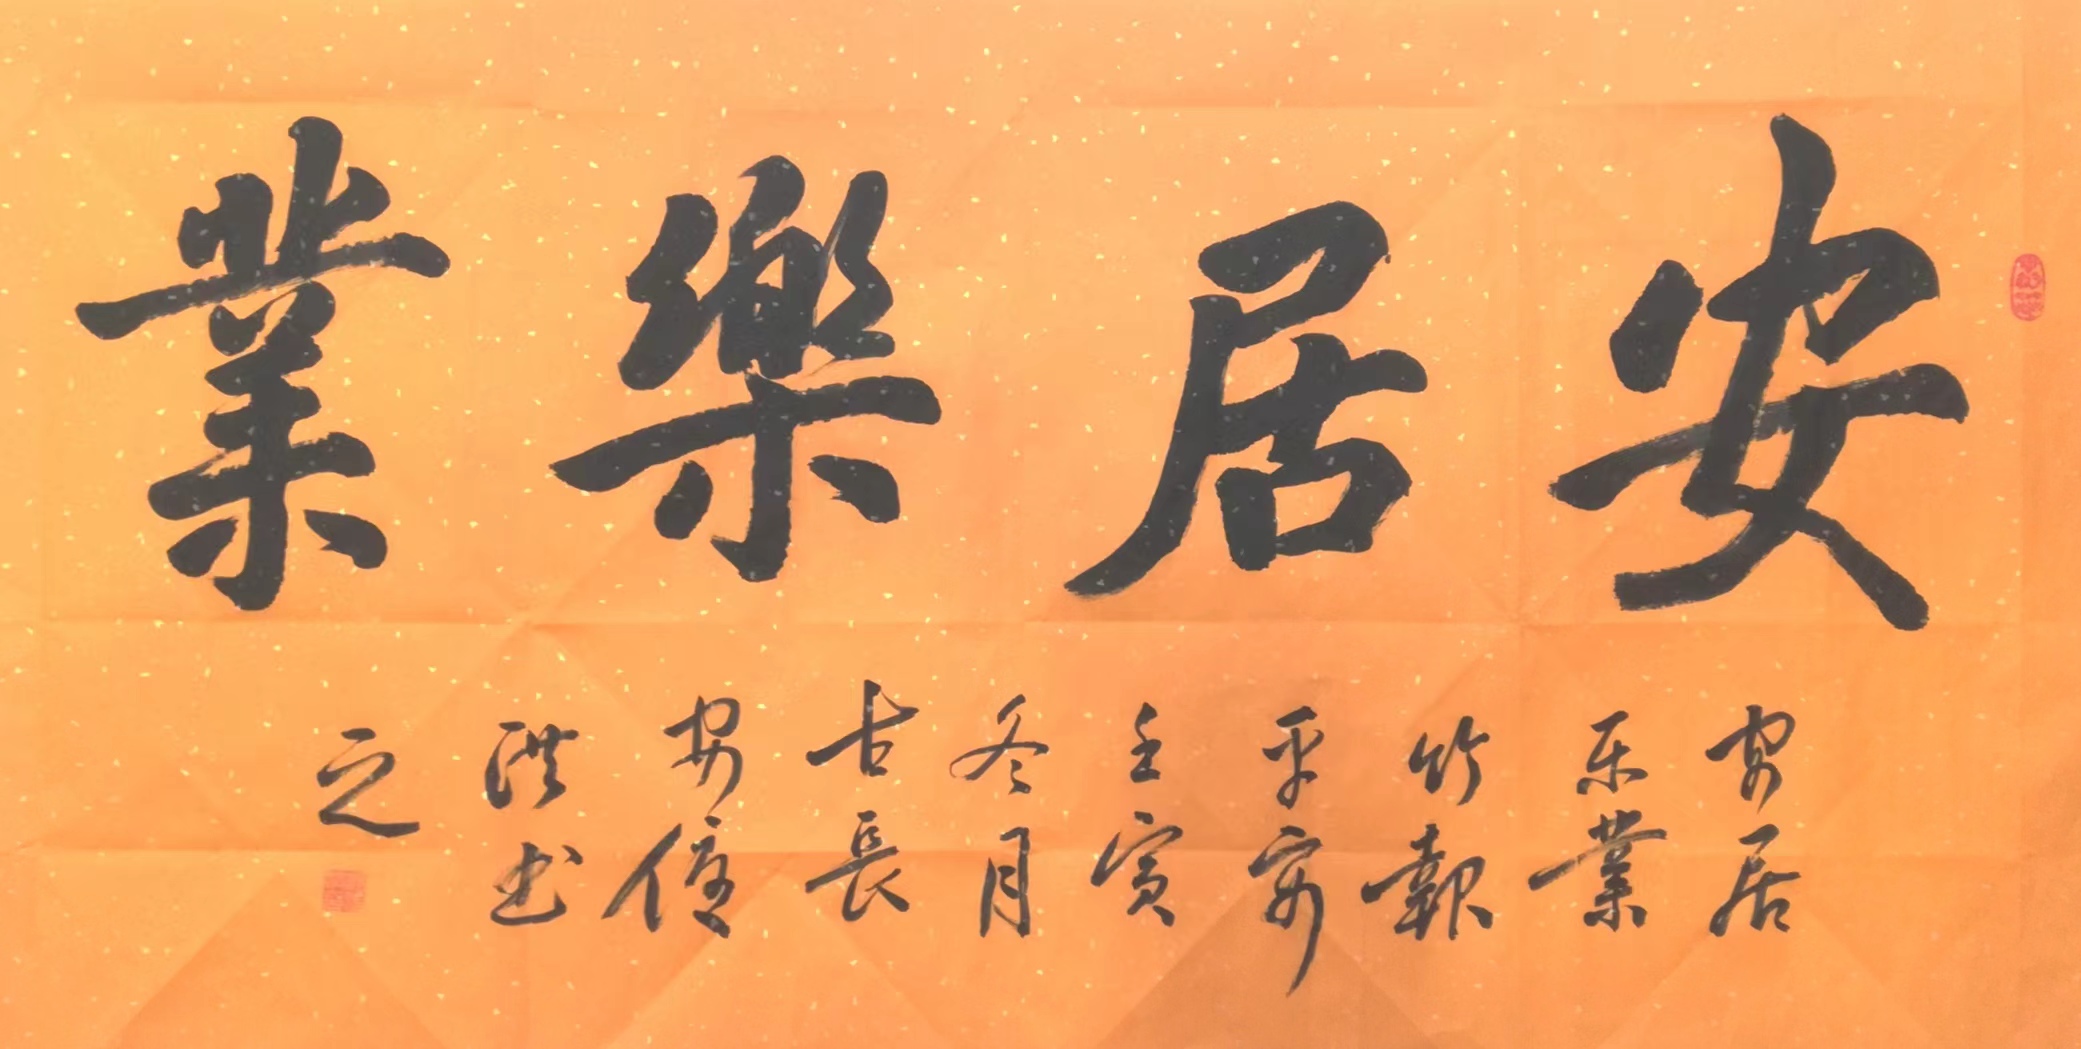 安居樂業
安居
乐業
竹報
平安
壬寅
冬月
古長
安
洪书
之